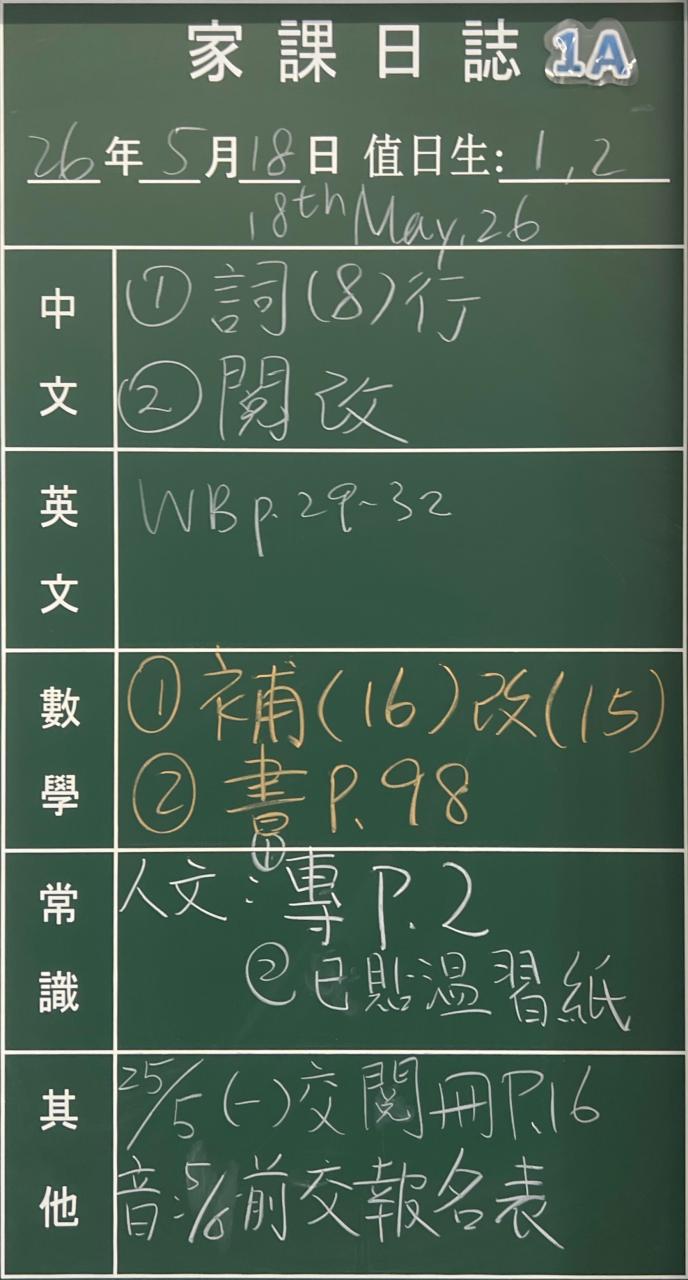 家課日誌 1A
26年5月18日 值日生: 1, 2
18th May, 26
中文
① 詞(8)行
② 閱改
英文
WB p. 29-32
數學
① 補(16)改(15)
② 書 P. 98
常識
人文: ① 專 P. 2
② 已貼溫習紙
其他
25/5 (一) 交閱冊 P.16
音: 5/6 前交報名表